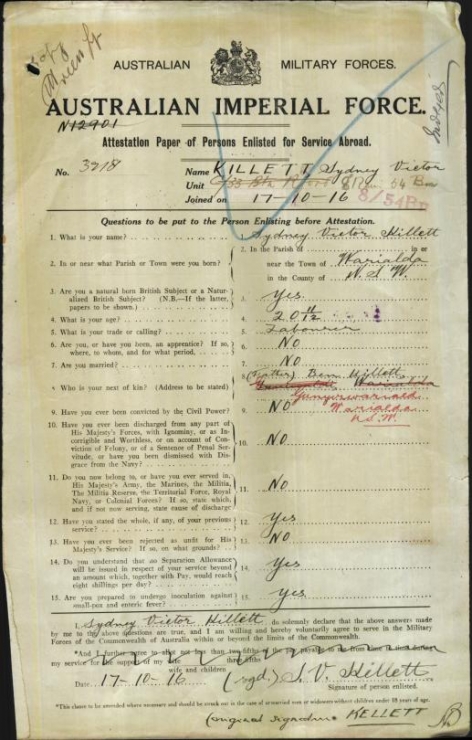 AUSTRALIAN MILITARY FORCES.
AUSTRALIAN IMPERIAL FORCE.
N12901
Indexed
Attestation Paper of Persons Enlisted for Service Abroad.
No. 3218 Name KILLETT Sydney Victor
Unit 54 Bn
Joined on 17-10-16 8/54 Bn
Questions to be put to the Person Enlisting before Attestation.
1. What is your name? 1. Sydney Victor Killett
2. In or near what Parish or Town were you born? 2. In the Parish of in or
near the Town of Warialda
in the County of N.S.W.
3. Are you a natural born British Subject or a Natu-
ralized British Subject? (N.B.—If the latter,
papers to be shown.) 3. Yes
4. What is your age? 4. 20
5. What is your trade or calling? 5. Labourer
6. Are you, or have you been, an apprentice? If so,
where, to whom, and for what period, 6. No
7. Are you married? 7. No
8. Who is your next of kin? (Address to be stated) 8. (Father) Ben Killett
Warialda
Warialda
N.S.W.
9. Have you ever been convicted by the Civil Power? 9. No
10. Have you ever been discharged from any part of
His Majesty's Forces, with Ignominy, or as In-
corrigible and Worthless, or on account of Con-
viction of Felony, or of a Sentence of Penal Ser-
vitude, or have you been dismissed with Dis-
grace from the Navy? 10. No
11. Do you now belong to, or have you ever served in,
His Majesty's Army, the Marines, the Militia,
The Militia Reserve, the Territorial Force, Royal
Navy, or Colonial Forces? If so, state which,
and if not now serving, state cause of discharge 11. No
12. Have you stated the whole, if any, of your previous
service? 12. Yes
13. Have you ever been rejected as unfit for His
Majesty's Service? If so, on what grounds? 13. No
14. Do you understand that no Separation Allowance
will be issued in respect of your service beyond
an amount which, together with Pay, would reach
eight shillings per day? 14. Yes
15. Are you prepared to undergo inoculation against
small-pox and enteric fever? 15. Yes
I, Sydney Victor Killett do solemnly declare that the above answers
made by me to the above questions are true, and I am willing and hereby voluntarily agree to serve in the Military
Forces of the Commonwealth of Australia within or beyond the limits of the Commonwealth.
*And I further agree to allot not less than two-fifths of the pay payable to me from time to time during
my service for the support of my wife
wife and children.
Date 17-10-16 (sgd.) S. V. Killett
Signature of person enlisted.
(original signature KELLETT)